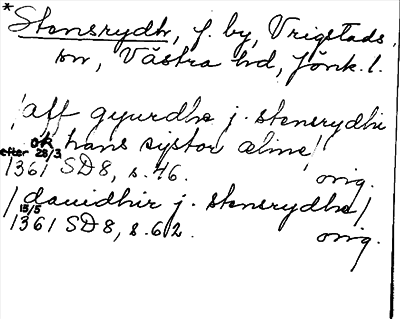 * Stensrydh, f. by, Vrigstads
sn, Västra hd, Jönk. l.
/aff gyurdhe j. stensrydhe
ok hans systor elme/
efter 28/3
1361 SD 8, s. 46. orig.
/dauidhir j. stensrydhe/
15/5
1361 SD 8, s. 62. orig.